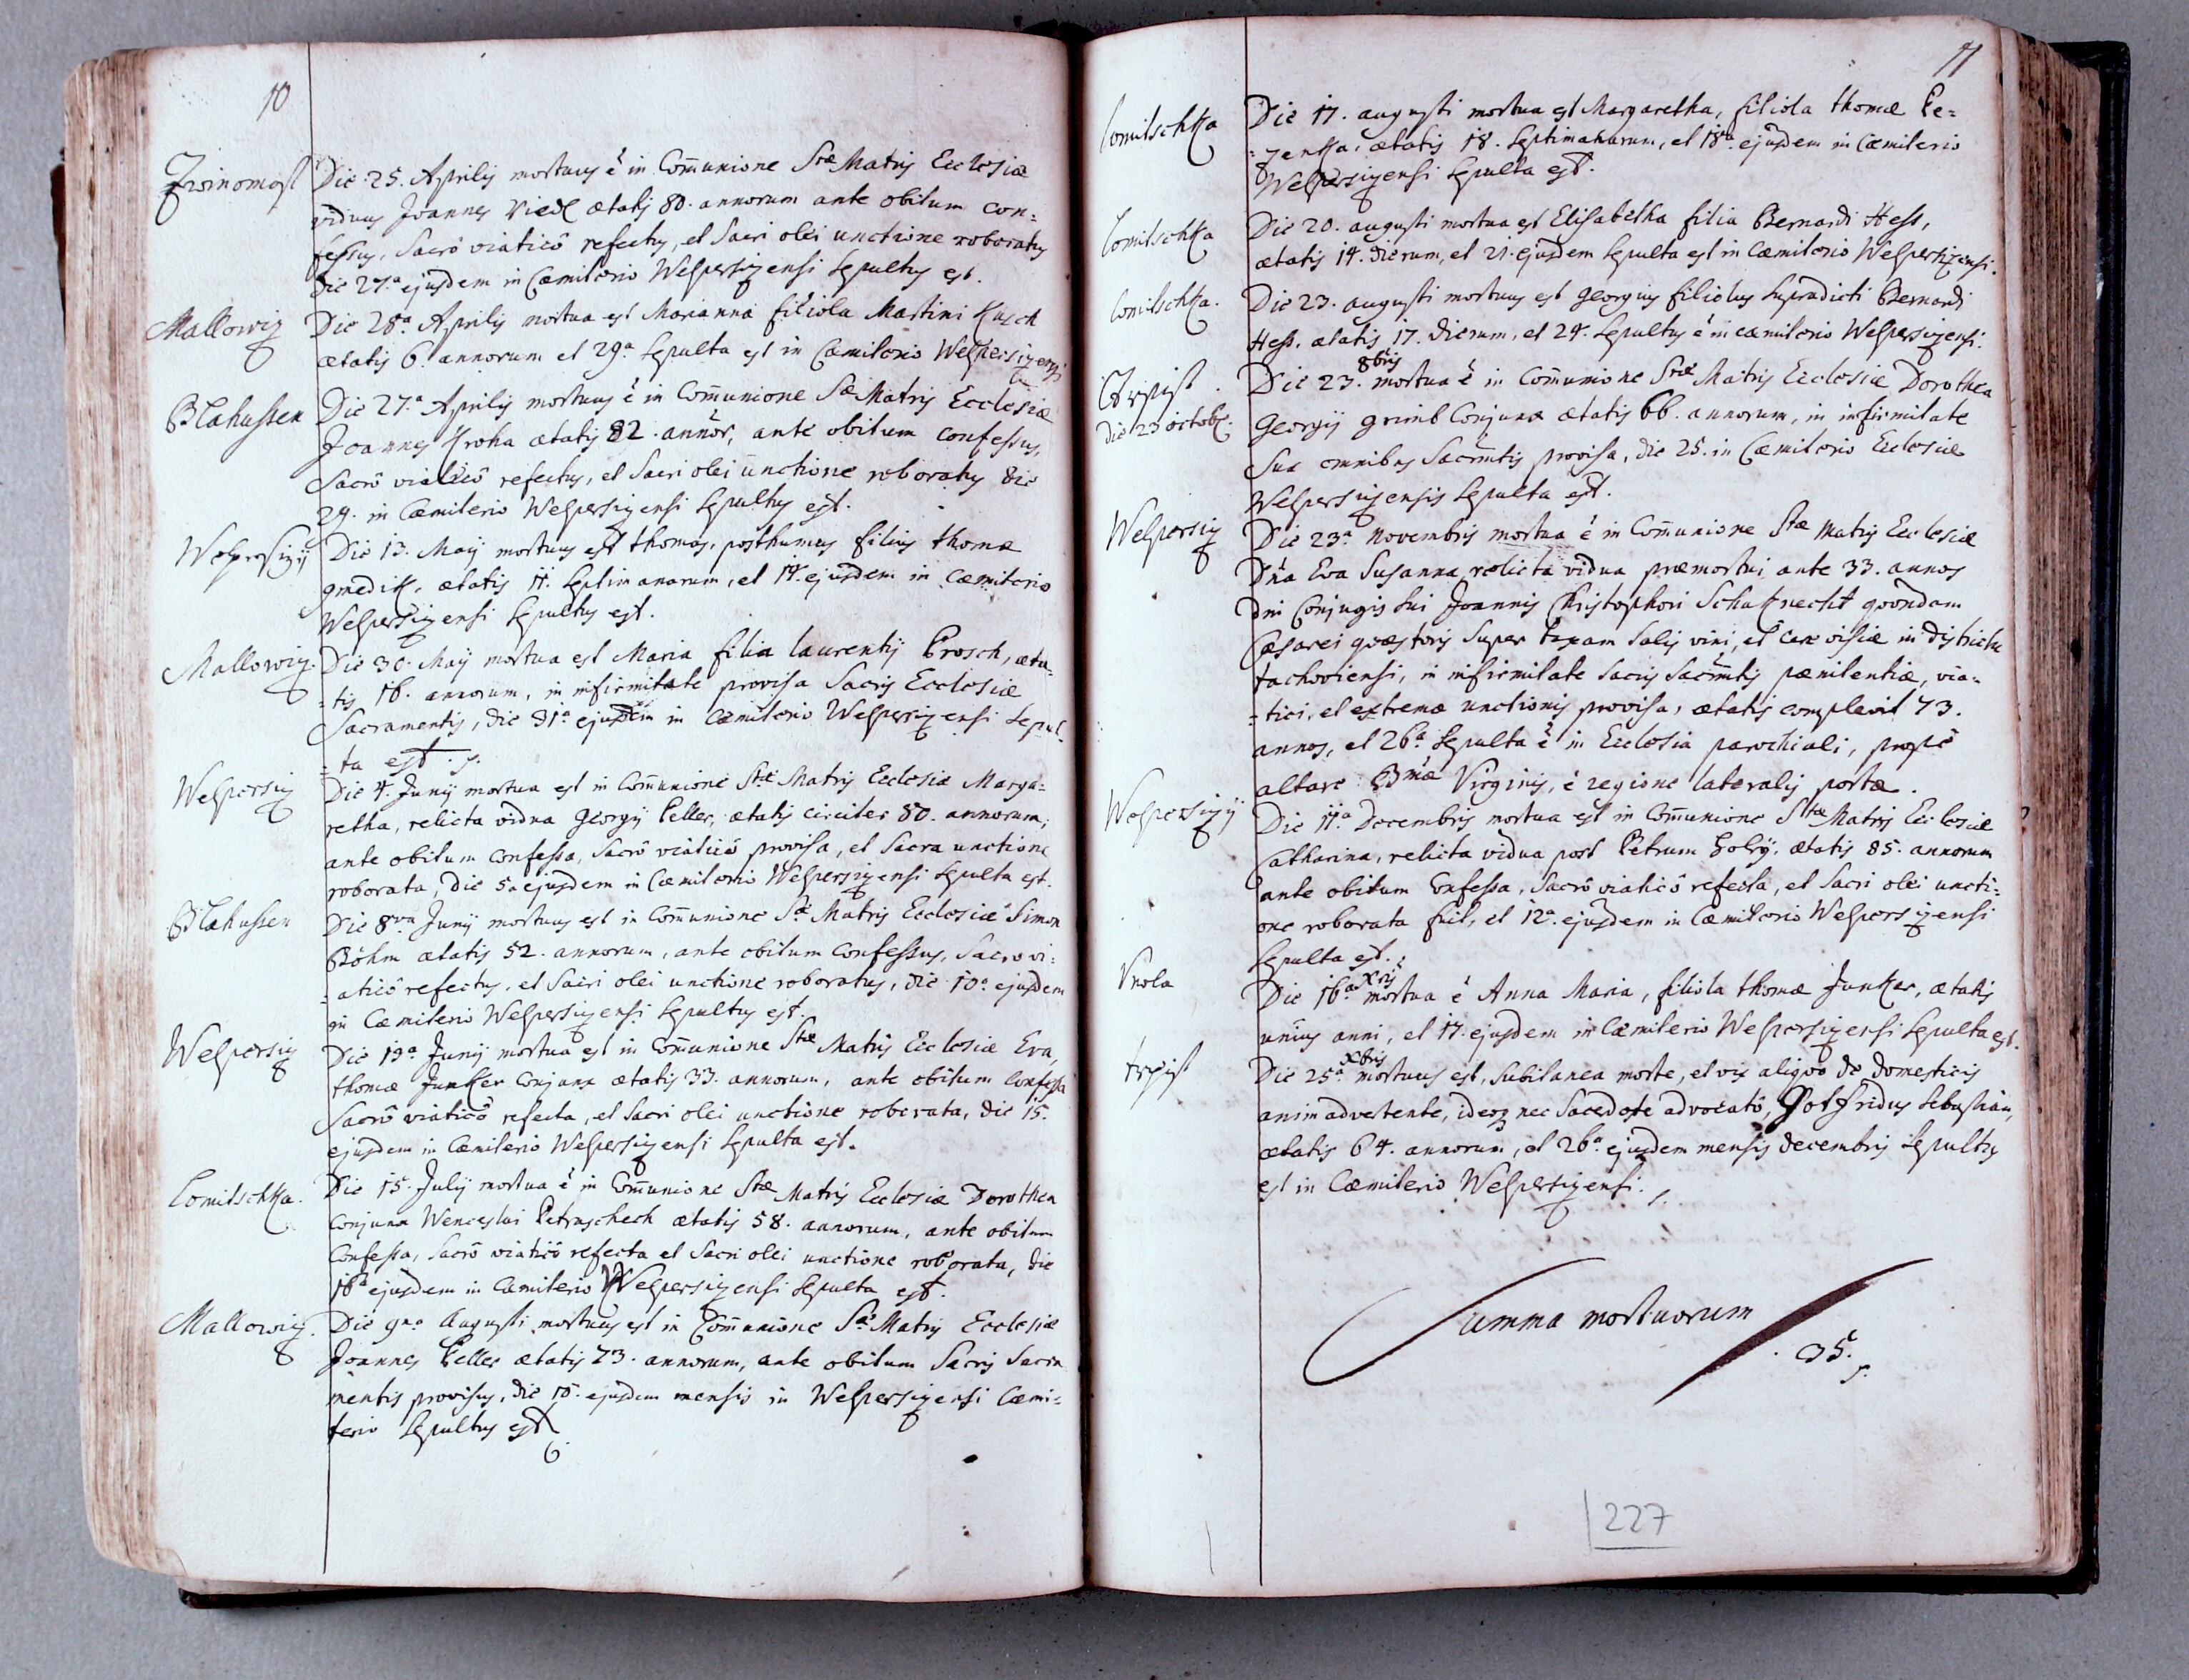 10
Zwinomost Die 25. Aprilis mortuus ẽ in Com̃unione Stæ Matris Ecclesiæ
viduus Joannes Riedl ætatis 80. annorum ante obitum con=
fessus, sacrô viaticô refectus, et sacri olei unctione roboratus
die 27.ª ejusdem in Cæmiterio Welpersizensi sepultus est.
Mallowiz Die 28ª Aprilis mortua est Marianna filiola Martini Kusch
ætatis 6. annorum et 29.ª sepulta est in Cæmiterio Welpersizensi
Blahussen Die 27.ª Aprilis mortuus ẽ in Com̃unione Sæ Matris Ecclesiæ
Joannes Kroha ætatis 82. annor, ante obitum confessus,
Sacrô viaticô refectus, et sacri olei unctione roboratus die
29. in Cæmiterio Welpersizensi sepultus est.
Welpersizÿ Die 13. Maÿ mortuus est thomas, posthumus filius thomæ
gmedik, ætatis 11. septimanarum, et 14. ejusdem in cæmiterio
Welpersizensi sepultus est.
Mallowiz. Die 30. Maÿ mortua est Maria filia laurentÿ Prosch, æta=
=tis 16. annorum, in infirmitate provisa Sacris Ecclesiæ
Sacramentis, die 31ª ejusdem in Cæmiterio Welpersizensi sepul=
=ta est.
Welpersiz Die 4. Junÿ mortua est in Com̃unione Stæ Matris Ecclesiæ Marga=
retha, relicta vidua Georgÿ Peller, ætatis circiter 80. annorum,
ante obitum confessa, sacrô viaticô provisa, et sacra unctione
roborata, die 5.a ejusdem in Cæmiterio Welpersizensi sepulta est.
Blahussen Die 8va Junÿ mortuus est in Com̃unione Sæ Matris Ecclesiæ Simon
Böhm ætatis 52. annorum, ante obitum confessus, Sacro vi=
=aticô refectus, et sacri olei unctione roboratus, die 10.ª ejusdem
in Cæmiterio Welpersizensi sepultus est.
Welpersiz Die 13ª Junÿ mortua est in Com̃unione Stæ Matris Ecclesiæ Eva,
thomæ Junker Conjunx ætatis 33. annorum, ante obitum confessa
Sacrô viaticô refecta, et sacri olei unctione roborata, die 15.
ejusdem in Cæmiterio Welpersizensi sepulta est.
Lomitschka. Die 15. Julÿ mortua ẽ in Com̃unione Stæ Matris Ecclesiæ Dorothea
Conjunx Wenceslai Petraschech ætatis 58. annorum, ante obitum
Confessa, sacrô viaticô refecta et sacri olei unctione roborata, die
16ª ejusdem in Cæmiterio Welpersizensi sepulta est.
Mallowiz. Die 9na Augusti mortuus est in Com̃unione Sæ Matris Ecclesiæ
Joannes Peller ætatis 73. annorum, ante obitum sacris sacra
mentis provisus, die 10. ejusdem mensis in Welpersizensi Cæmi=
terio sepultus est
11
Lomitschka Die 17. augusti mortua est Margaretha, filiola thomæ Pe=
=zenka, ætatis 18. septimanarum, et 18va. ejusdem in Cæmiterio
Welpersizensi sepulta est.
Lomitschka Die 20. augusti mortua est Elisabetha filia Bernardi Hess,
ætatis 14. dierum, et 21. ejusdem sepulta est in Cæmiterio Welpersizensi.
Lomitschka. Die 23. augusti mortuus est georgius filiolus supradicti Bernardi
Hess, ætatis 17. dierum, et 24. sepultus ẽ in cæmiterio Welpersizensi.
Trpist. Die 23. 8bris mortua ẽ in Com̃unione Stæ Matris Ecclesiæ Dorothea
die 23 octobr. Georgÿ grimb Conjunx ætatis 66. annorum, in infirmitate
Sua omnibus Sacrm̃tis provisa, die 25. in Cæmiterio Ecclesiæ
Welpersizensis sepulta est.
Welpersiz Die 23.ª Novembris mortua ẽ in Com̃unione Stæ Matris Ecclesiæ
Dña Eva Susanna relicta vidua præmortui ante 33. annos
dñi Conjugis sui Joannis Christophori Schaknecht quondam
Cæsarei quæstoris super taxam salis vini, et cerevisiæ in districtu
tachoviensi, in infirmitate sacris Sacrm̃tis pænitentiæ, via=
=tici, et extremæ unctionis provisa, ætatis complevit 73.
annos, et 26.ª sepulta ẽ in Ecclesia parochiali, propè
altare Bmæ Virginis, è regione lateralis portæ.
Welpersizÿ Die 11.ª Decembris mortua est in Com̃unione Stæ Matris Ecclesiæ
Catharina, relicta vidua post Petrum Holÿ, ætatis 85. annorum
ante obitum Confessa, Sacrô viaticô refecta, et sacri olei uncti=
one roborata fuit, et 12.ª ejusdem in Cæmiterio Welpersizensi
sepulta est.
Vnola Die 16.ª Xris mortua ẽ Anna Maria, filiola thomæ Junker, ætatis
unius anni, et 17. ejusdem in Cæmiterio Welpersizensi sepulta est.
trpist Die 25.ª Xbris mortuus est, subitanea morte, et vix aliquo de domesticis
animadvertente, ideoq nec Sacerdote advocatô, Gotfridus Sebastian,
ætatis 64. annorum, et 26.ª ejusdem mensis decembris sepultus
est in Cæmiterio Welpersizensi.
Summa mortuorum
35.
227